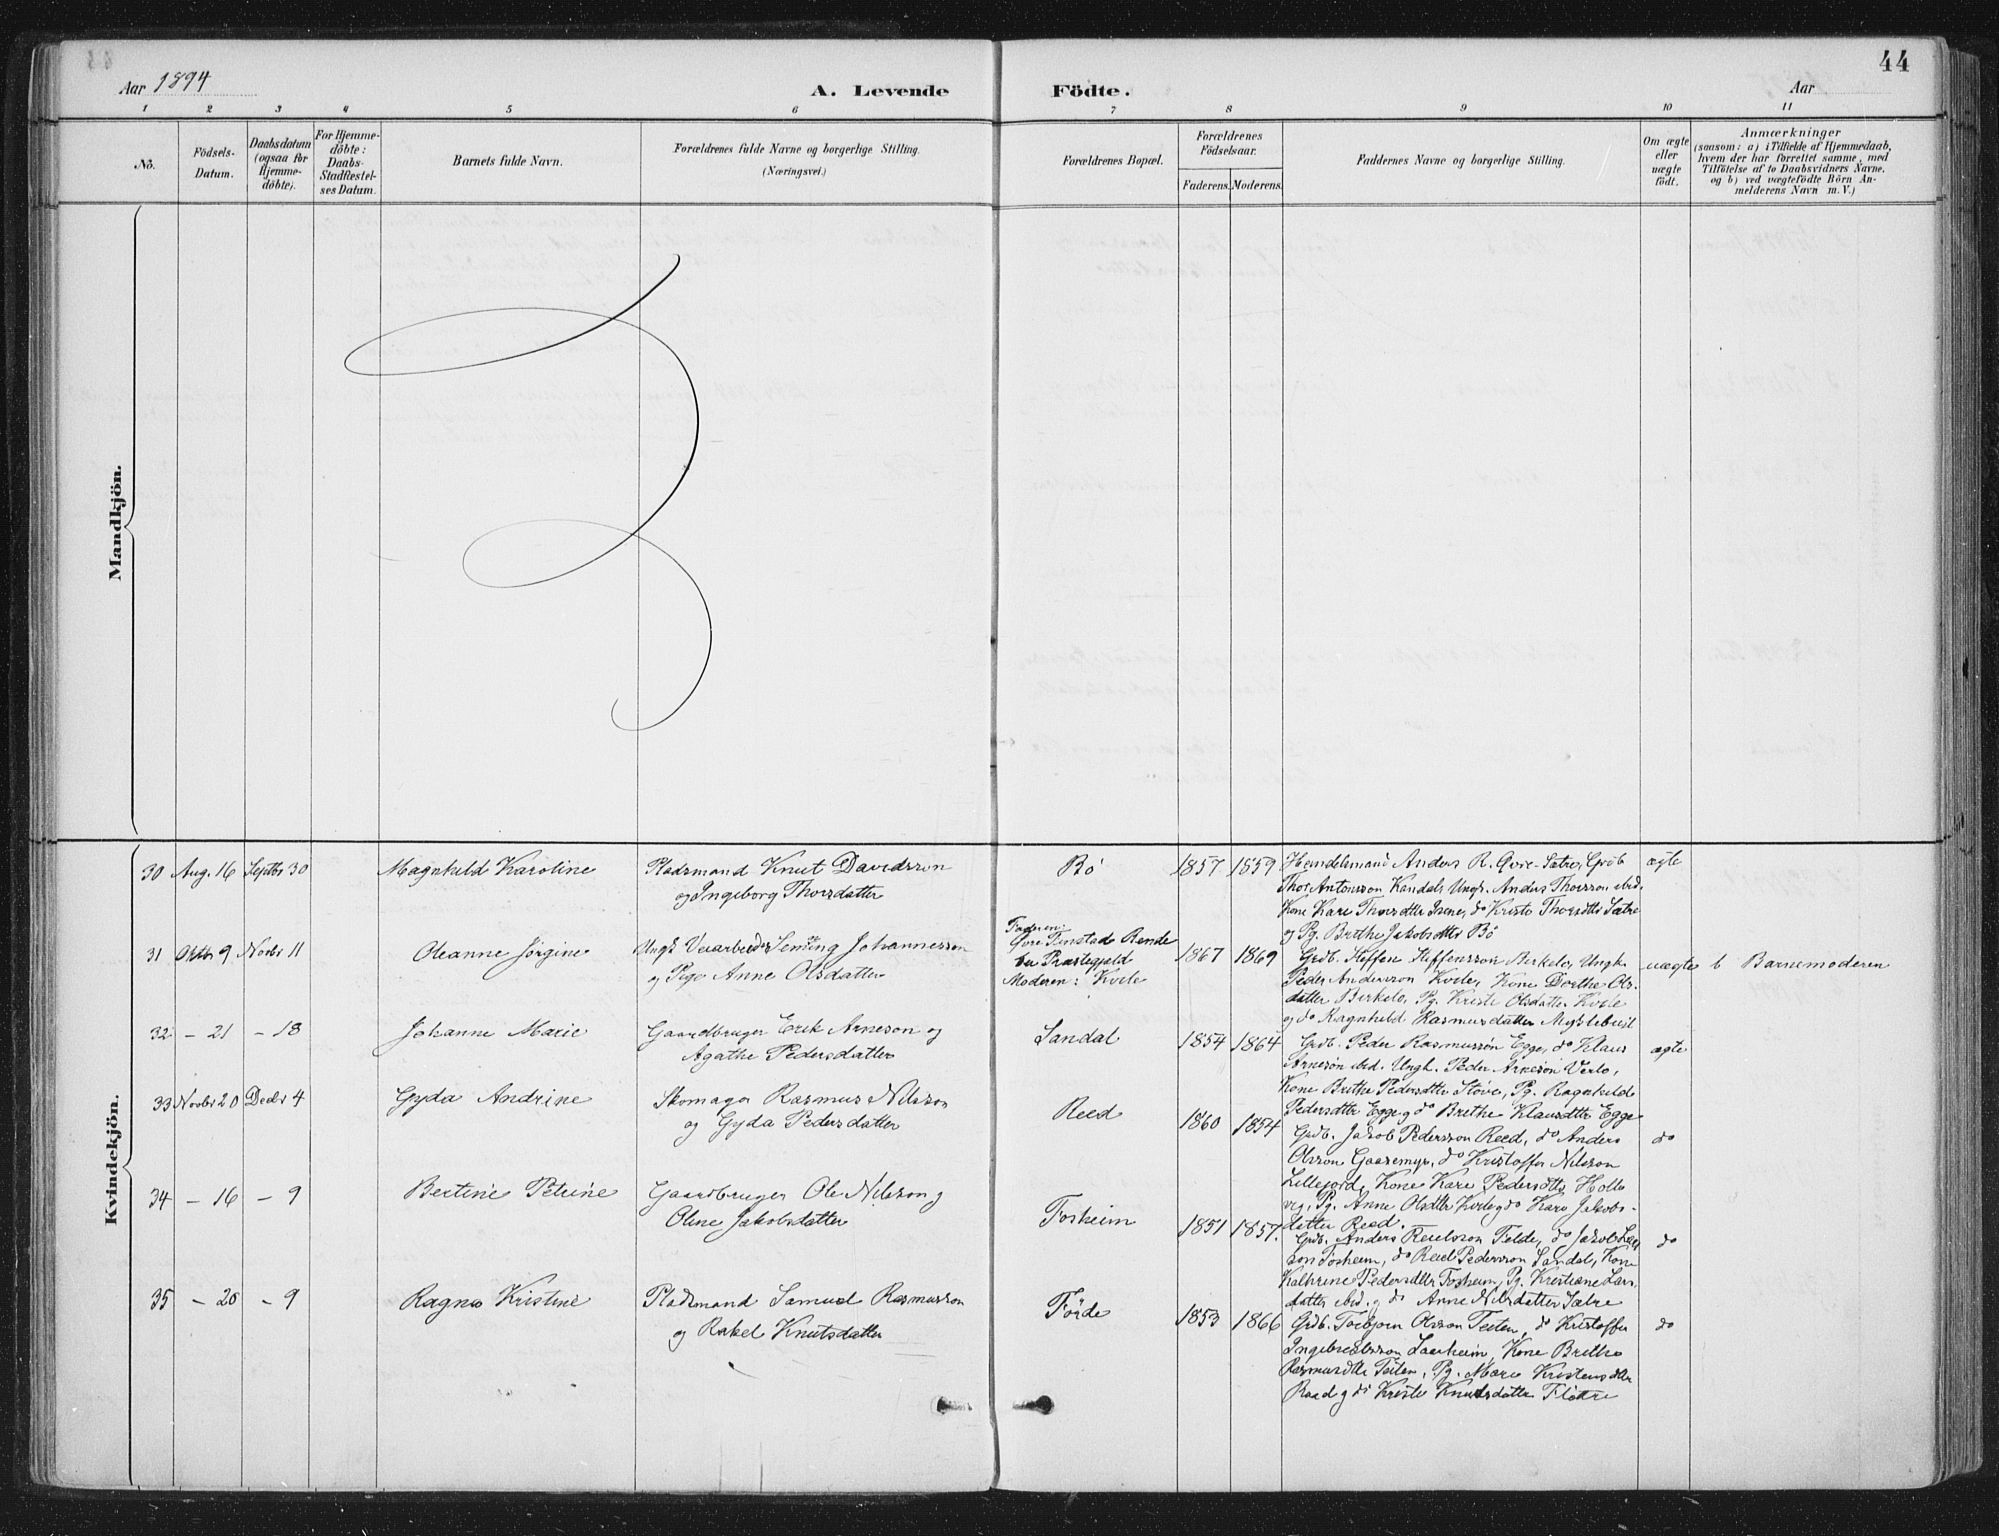 44
Aar 1894
A. Levende Födte.
Aar
1 2 3 4 5 6 7 8 9 10 11
No.
Födsels-Datum.
Daabsdatum (ogsaa for Hjemme-döbte).
For Hjemme-döbte: Daabs-Stadfæstel-ses Datum.
Barnets fulde Navn.
Forældrenes fulde Navne og borgerlige Stilling.
(Næringsvei.)
Forældrenes Bopæl.
Forældrenes Födselsaar.
Faderens. Moderens.
Faddernes Navne og borgerlige Stilling.
Om ægte eller uægte födt.
Anmærkninger
(saasom: a) i Tilfælde af Hjemmedaab,
hvem der har forrettet samme, med
Tilföielse af to Daabsvidners Navne.
og b) ved uægtefödte Börn An-
melderens Navn m. V.)
Mandkjön.
Kvindekjön.
30 Aug. 16 Septbr 30 Magnhild Karoline Pladsmand Knut Davidsson
og Ingeborg Thorsdatter
Bö 1857 1859
Handelsmand Anders R. Øvre-Sætre, Grdb
Thor Antonsson Kandal, Ungk. Anders Thorsson ibid.
Kone Kari Thorsdtter Isene, do Kristi Thorsdtter Sætre
og Pg. Brithe Jakobsdtter Bö
ægte
31 Oktbr 9 Novbr 11 Oleanne Jørgine Ungk Veiarbeider Semming Johannesson
og Pige Anne Olsdatter
Faderen:
Øvre Finstad Rende
bu Præstegjeld
Moderen: Kvile
1867 1869
Grdb. Steffen Steffensson Birkelo, Ungk.
Peder Andersson Kvile, Kone Dorthe Ols-
datter Birkelo, Pg. Kristi Olsdatter Kvile
og do Ragnhild Rasmusdatter Myklebust
uægte b Barnemoderen
32 — 21 — 18 Johanne Marie Gaardbruger Erik Arneson og
Agathe Pedersdatter
Sandal 1854 1864
Grdb. Peder Rasmusson Egge, do Klaus
Arneson ibid. Ungk. Peder Arneson Verlo,
Kone Brithe Pedersdtter Støve, Pg. Ragnhild
Pedersdtter Egge g do Brithe Klausdtter Egge
ægte
33 Novbr 20 Decbr 4 Gyda Andrine Skomager Rasmus Nilsson
og Gyda Pedersdatter
Reed 1860 1854
Grdb. Jakob Pedersson Reed, do Anders
Olsson Gaasemyr, do Kristoffer Nilsson
Lillefjord, Kone Kari Pedersdtter Holle
vig, Pg. Anne Olsdtter Kvile g do Kari Jakobs-
datter Reed.
do
34 — 16 — 9 Bertine Petrine Gaardbruger Ole Nilsson g
Oline Jakobsdatter
Fosheim 1851 1857.
Grdb. Anders Reielsson Felde, do Jakob Lar
son Fosheim, do Reiel Pedersson Sandal, Kone
Kathrine Pedersdtter Fosheim, Pg. Kristiane Lars
datter ibid. g do Anne Nilsdatter Sætre
do
35 — 20 — 9 Ragna Kristine Pladsmand Samuel Rasmusson
og Rakel Knutsdatter
Förde 1853 1866
Grdb. Torbjørn Olsson Teiten, do Kristoffer
Ingebrigtsson Laerheim, Kone Brithe
Rasmusdtter Teiten, Pg. Mari Kristensdtter
Raad g do Kristi Knutsdatter Flötre
do